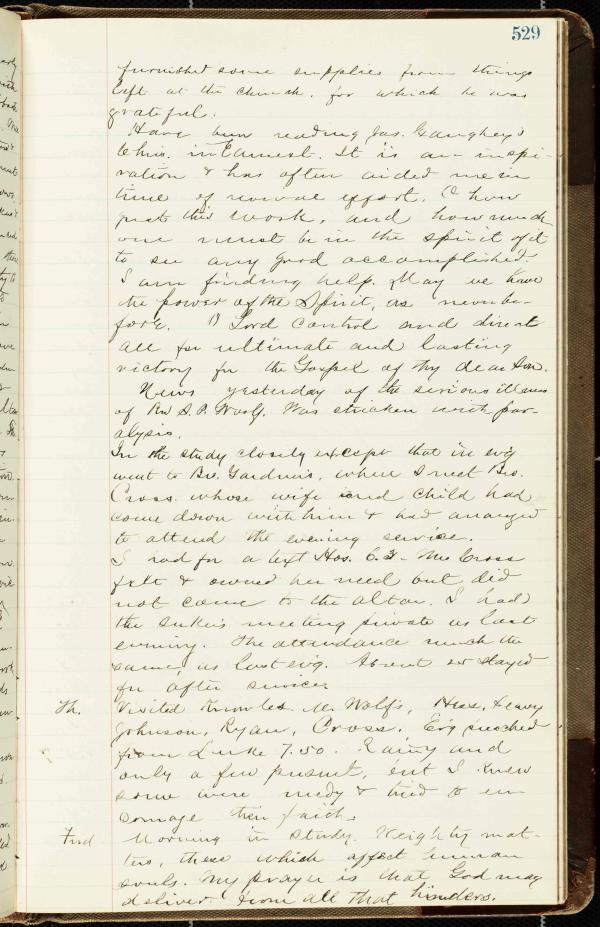 529
furnished some supplies from things
left at the church. for which he was
grateful.
Have been reading Jas. Caughey's
Chris. in Earnest. It is an inspi-
ration & has often aided me in
time of revival effort. O how
great this work, and how much
one must be in the spirit of it
to see any good accomplished.
I am finding help. May we have
the power of the Spirit, as never be-
fore. O Lord control and direct
all for ultimate and lasting
victory for the Gospel of thy dear Son.
News yesterday of the serious illness
of Rev S. P. Woolf. Was stricken with par-
alysis.
In the study closely except that in ev'g
went to Bro. Gardner's, where I met Bro.
Cross whose wife and child had
come down with him & had arranged
to attend the evening service.
I had for a text Hos. 6.3- Mrs Cross
felt & owned her need but did
not come to the altar. I had
the seekers meeting private as last
evening. The attendance much the
same, as last ev'g. About 25 stayed
for after services.
Th. Visited Knowles Mr. Wolf's, Hess,
Johnson, Ryan, Cross. Ev'g preached
from Luke 7.50. Rainy and
only a few present, but I knew
some were needy & tried to en-
courage their faith.
Frid Morning in study. Weighty mat-
ters, these which affect human
souls. My prayer is that God may
deliver from all that hinders.